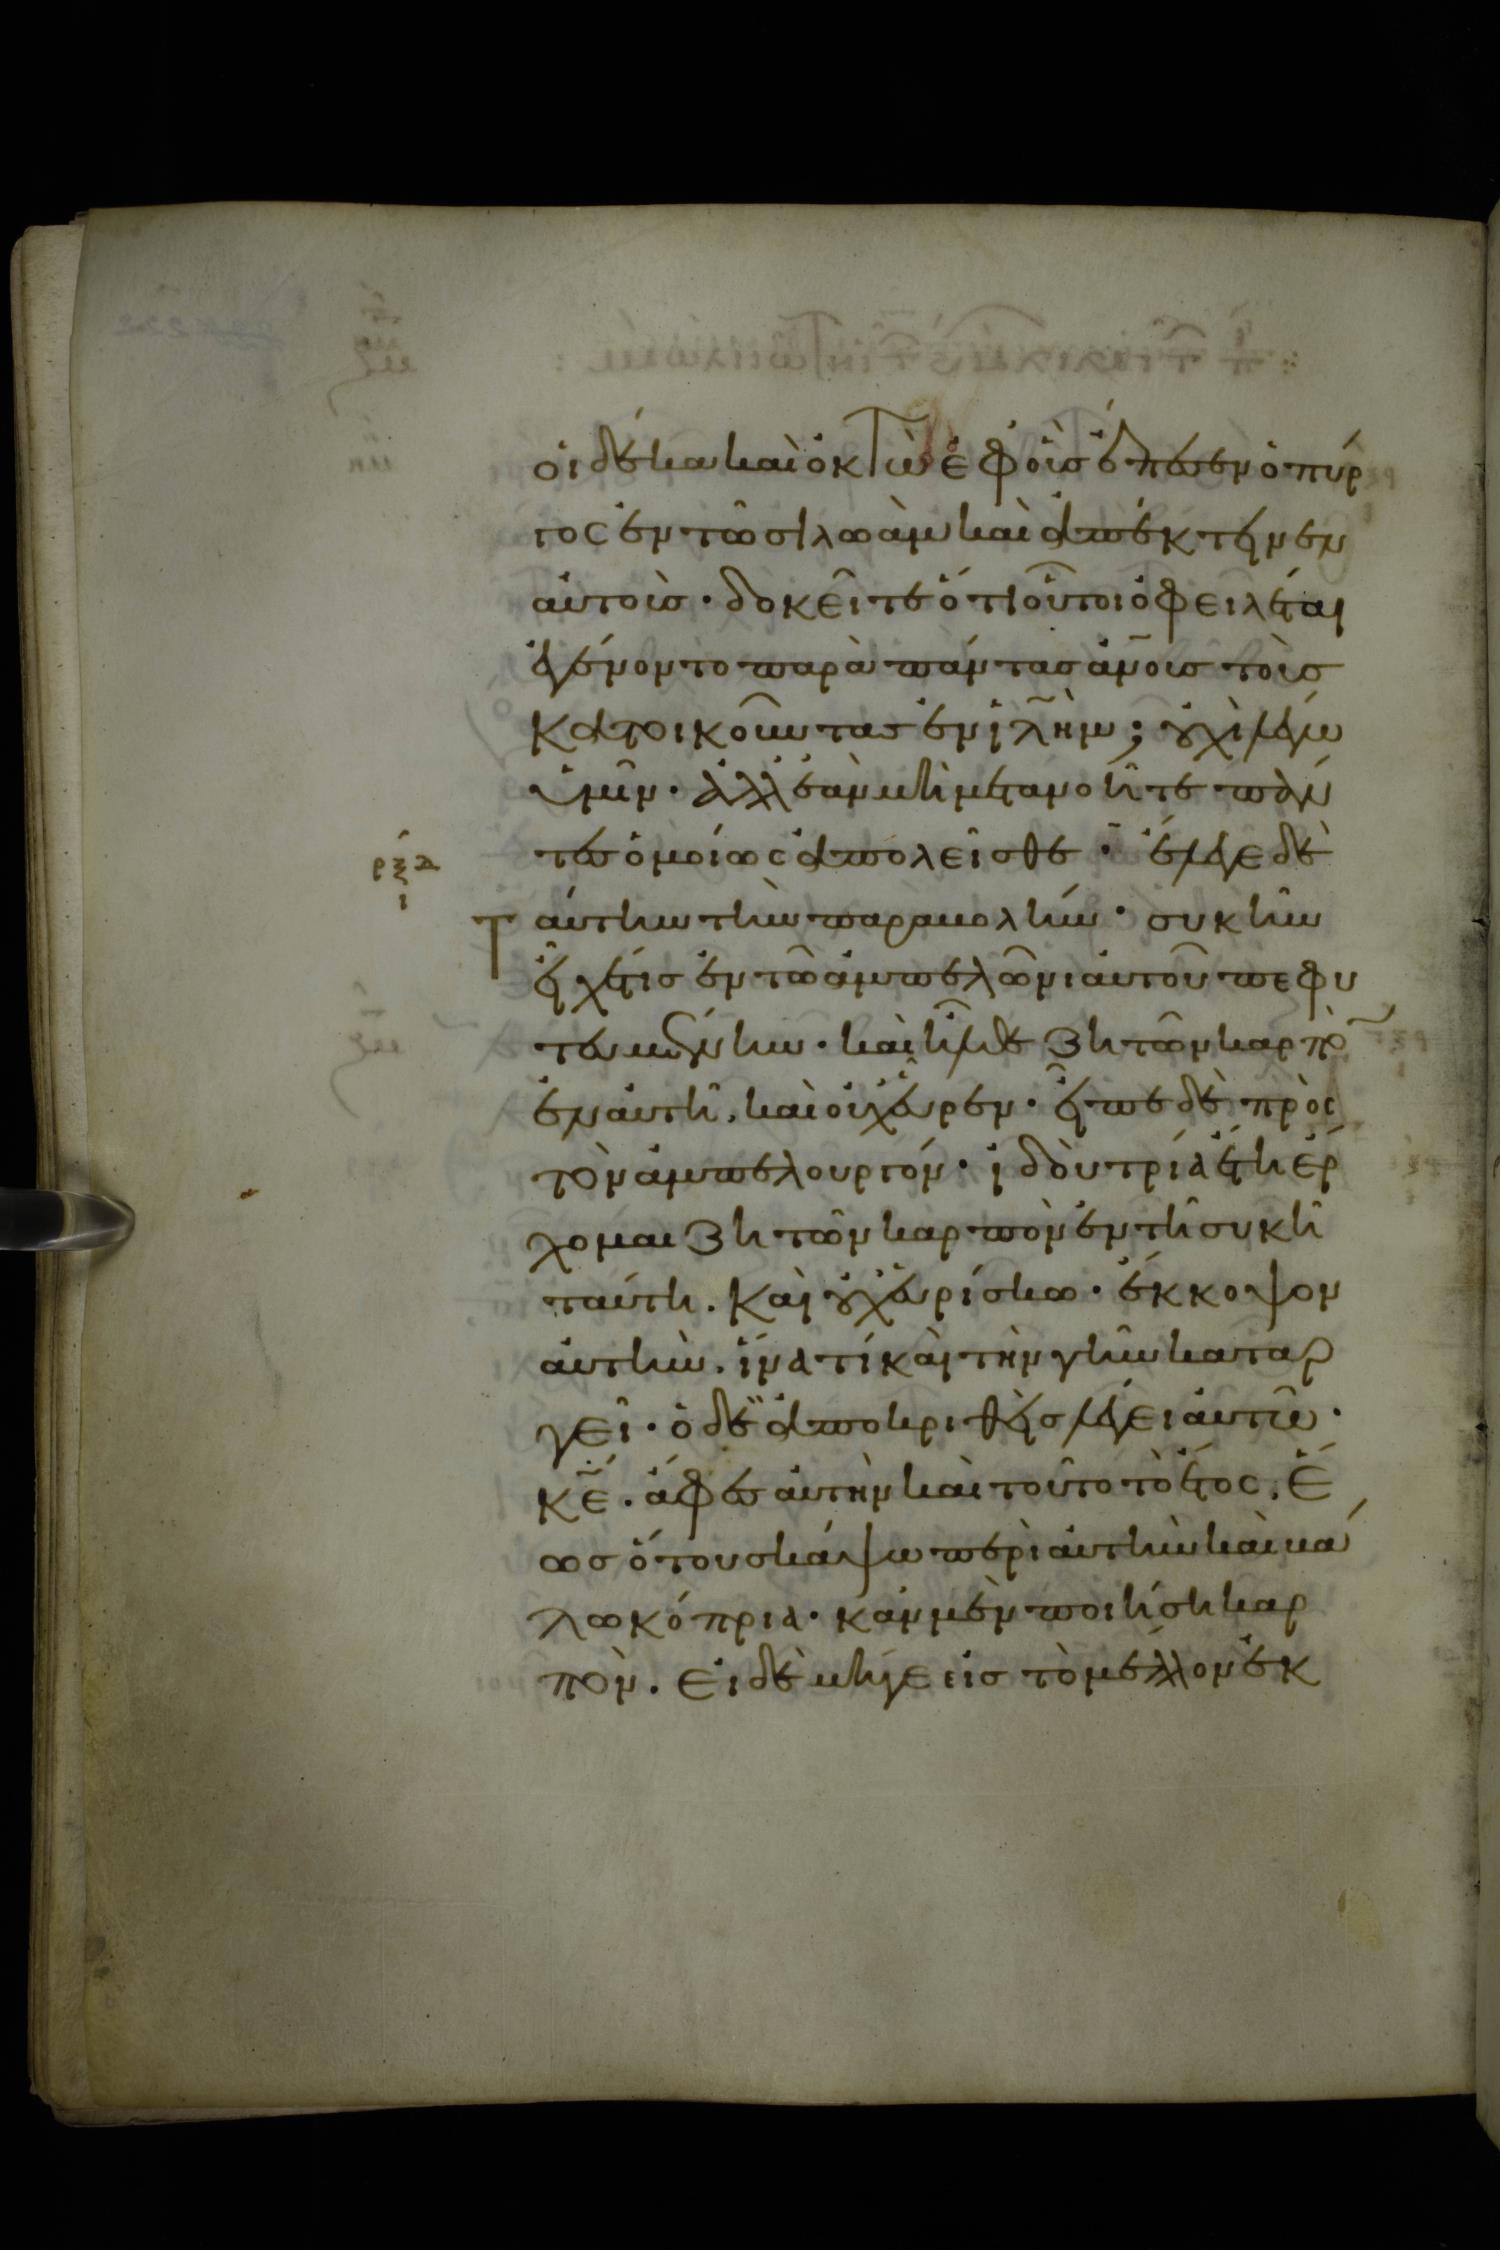 οἱ δέκα καὶ ὀκτὼ ἐφ οἷς ἔπεσεν ὁ πύρ
γος ἐν τῶ σιλωὰμ καὶ ἀπέκτεινεν
αὐτοὺσ · δοκεῖτε ὅτι οὗτοι ὀφειλέται
ἐγένοντο παρὰ πάντασ ἀν̅ουσ τοὺσ
κατοικοῦντασ ἐν ἰλ̅ημ ; οὐχὶ λέγω
ὑμῖν · ἀλλ ἐὰν μὴ μετανοῆτε πάν
τεσ ὁμοίως ἀπολεῖσθε · ἔλεγε δὲ
ρξα
ι
Ταύτην τὴν παραβολήν · συκῆν
εἶχέ τισ ἐν τῶ ἀμπελῶνι αὐτοῦ πεφυ
τευμένην · καὶ ἦλθε ζητῶν καρπὸ
ἐν αὐτῆ, καὶ οὐχ εὗρεν · εἶπε δὲ πρὸς
τὸν ἀμπελουργόν · ἰδοὺ τρία ἔτη ἔρ
χομαι ζητῶν καρπὸν ἐν τῆ συκῆ
ταύτη. καὶ οὐχ εὑρίσκω · ἔκκοψον
αὐτὴν. ἵνα τί καὶ τὴν γῆν καταρ
γεῖ · ὁ δὲ ἀποκριθεὶσ λέγει αὐτῶ ·
κ̅ε̅ . ἄφεσ αὐτὴν καὶ τοῦτο τὸ ἔτος. ἕ
ωσ ὅτου σκάψω περὶ αὐτὴν καὶ βά
λω κόπρια · κἂν μὲν ποιήση καρ
πὸν . εἰ δὲ μήγε εἰσ τὸ μέλλον ἐκ